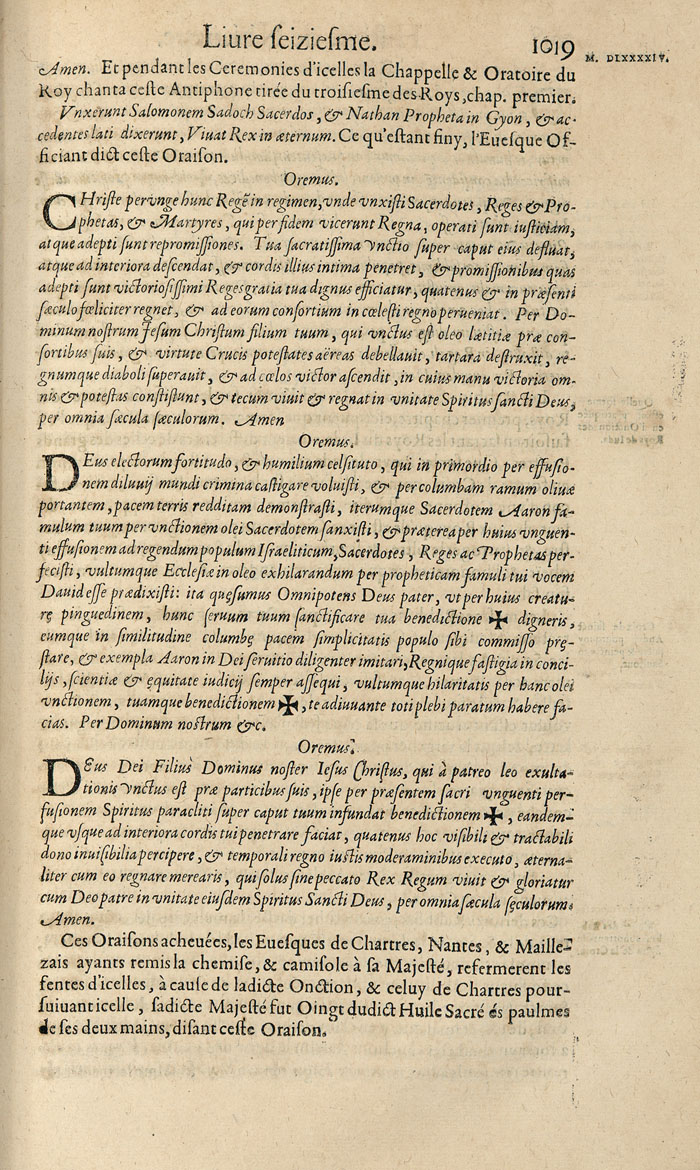 Liure seiziesme. 1019
M. DLXXXXIV.
Amen. Et pendant les Ceremonies d'icelles la Chappelle & Oratoire du
Roy chanta ceste Antiphone tirée du troisiesme des Roys, chap. premier.
Vnxerunt Salomonem Sadoch Sacerdos, & Nathan Propheta in Gyon, & ac-
cedentes lati dixerunt, Viuat Rex in æternum. Ce qu'estant finy, l'Euesque Of-
ficiant dict ceste Oraison.
Oremus.
CHriste pervnge hunc Regẽ in regimen, vnde vnxisti Sacerdotes, Reges & Pro-
phetas, & Martyres, qui per fidem vicerunt Regna, operati sunt iustitiam,
atque adepti sunt repromissiones. Tua sacratissima vnctio super caput eius defluat,
atque ad interiora descendat, & cordis illius intima penetret, & promissionibus quas
adepti sunt victoriosissimi Reges gratia tua dignus efficiatur, quatenus & in præsenti
sæculo fœliciter regnet, & ad eorum consortium in cœlesti regno perueniat. Per Do-
minum nostrum Jesum Christum filium tuum, qui vnctus est oleo lætitiæ præ con-
sortibus suis, & virtute Crucis potestates aëreas debellauit, tartara destruxit, re-
gnumque diaboli superauit, & ad cœlos victor ascendit, in cuius manu victoria om-
nis & potestas consistunt, & tecum viuit & regnat in vnitate Spiritus sancti Deus,
per omnia sæcula sæculorum. Amen
Oremus.
DEus electorum fortitudo, & humilium celsituto, qui in primordio per effusio-
nem diluuij mundi crimina castigare voluisti, & per columbam ramum oliuæ
portantem, pacem terris redditam demonstrasti, iterumque Sacerdotem Aaron fa-
mulum tuum per vnctionem olei Sacerdotem sanxisti, & præterea per huius vnguen-
ti effusionem ad regendum populum Israeliticum, Sacerdotes, Reges ac Prophetas per-
fecisti, vultumque Ecclesiæ in oleo exhilarandum per propheticam famuli tui vocem
Dauid esse prædixisti: ita quęsumus Omnipotens Deus pater, vt per huius creatu-
rę pinguedinem, hunc seruum tuum sanctificare tua benedictione ✠ digneris,
eumque in similitudine columbę pacem simplicitatis populo sibi commisso prę-
stare, & exempla Aaron in Dei seruitio diligenter imitari, Regnique fastigia in conci-
lijs, scientiæ & ęquitate iudicij semper assequi, vultumque hilaritatis per hanc olei
vnctionem, tuamque benedictionem ✠, te adiuuante toti plebi paratum habere fa-
cias. Per Dominum nostrum &c.
Oremus.
DEus Dei Filius Dominus noster Iesus Christus, qui à patreo leo exulta-
tionis vnctus est præ participibus suis, ipse per præsentem sacri vnguenti per-
fusionem Spiritus paracliti super caput tuum infundat benedictionem ✠, eandem-
que vsque ad interiora cordis tui penetrare faciat, quatenus hoc visibili & tractabili
dono inuisibilia percipere, & temporali regno iustis moderaminibus executo, æterna-
liter cum eo regnare merearis, qui solus sine peccato Rex Regum viuit & gloriatur
cum Deo patre in vnitate eiusdem Spiritus Sancti Deus, per omnia sæcula sęculorum.
Amen.
Ces Oraisons acheuées, les Euesques de Chartres, Nantes, & Maille-
zais ayants remis la chemise, & camisole à sa Majesté, refermerent les
fentes d'icelles, à cause de ladicte Onction, & celuy de Chartres pour-
suiuant icelle, sadicte Majesté fut Oingt dudict Huile Sacré és paulmes
de ses deux mains, disant ceste Oraison.